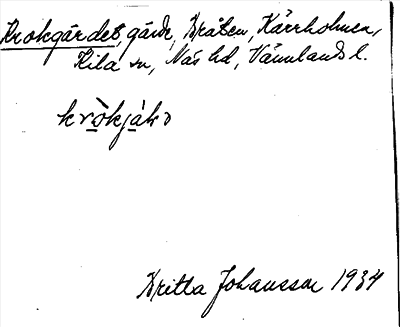 Krokgärdet, gärde, Bråten, Kärrholmen,
Kila sn, Näs hd, Värmlands l.
krò̠kjà̠ḷə
Britta Johansson 1934